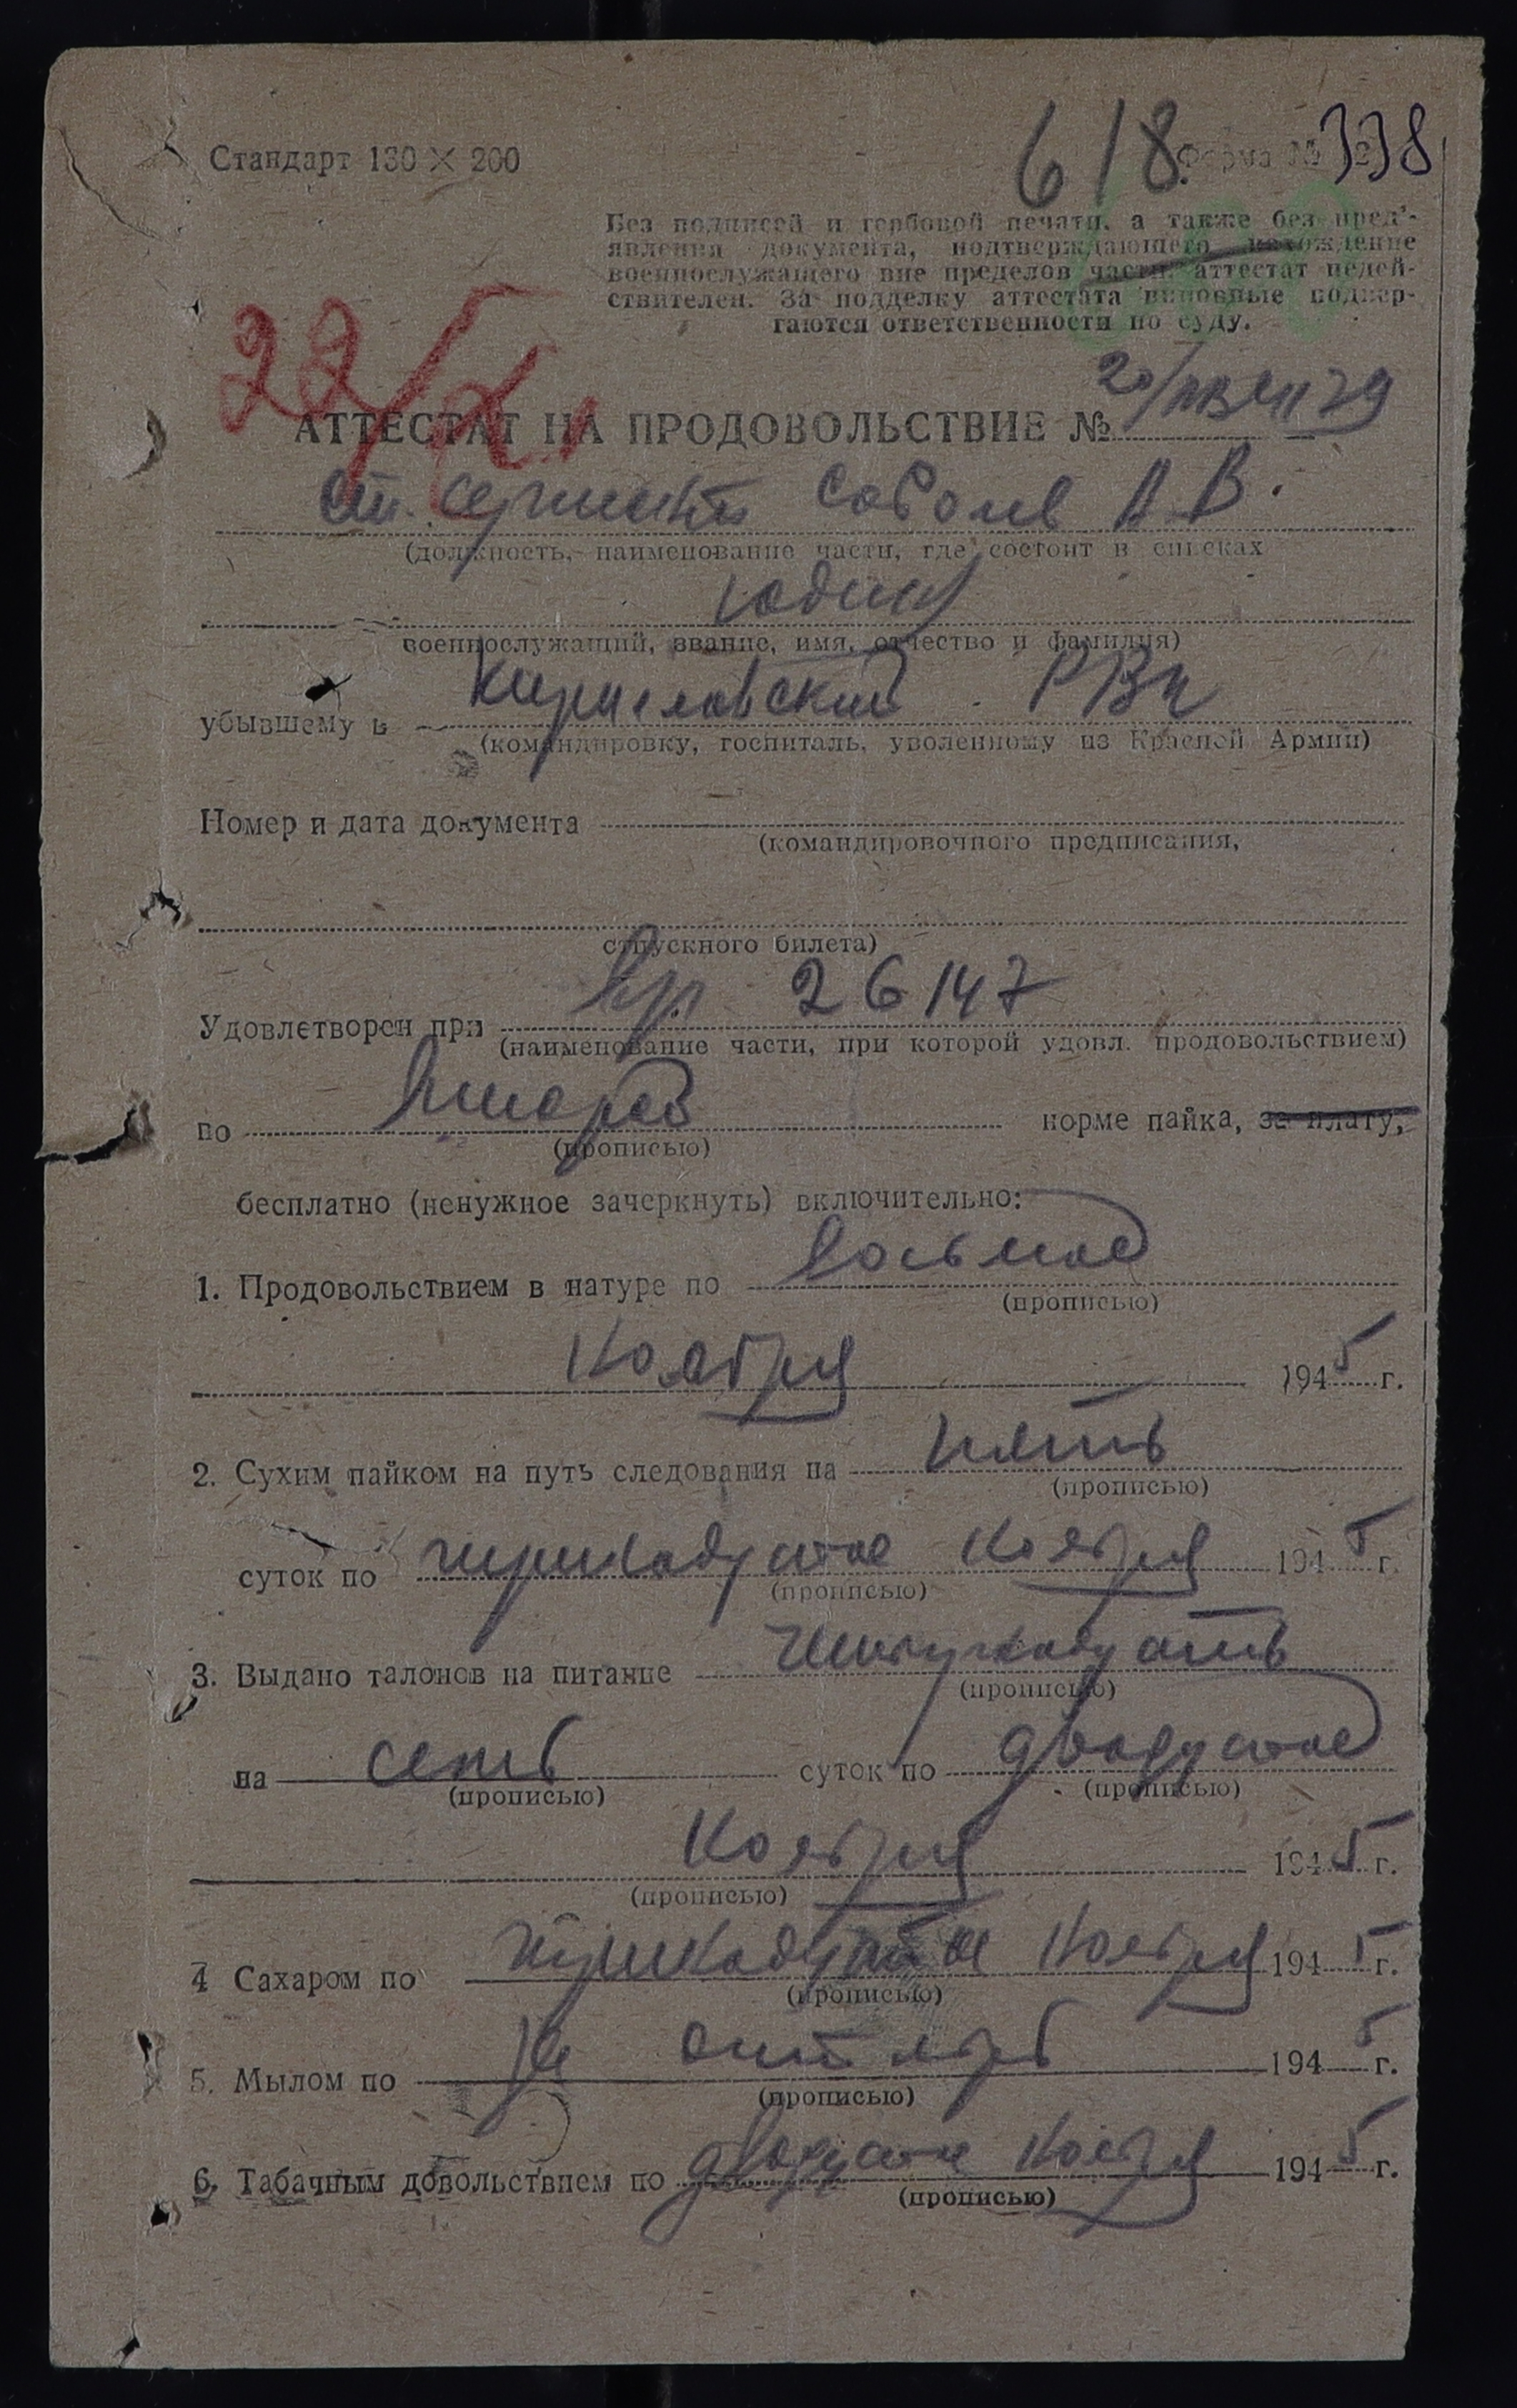 618. 338
Стандарт 130 × 200 Форма №
Без подписей и гербовой печати, а также без пред'-
явления документа, подтверждающего нахождение
военнослужащего вне пределов части, аттестат недей-
ствителен. За подделку аттестата виновные подвер-
гаются ответственности по суду.
22/XI
АТТЕСТАТ НА ПРОДОВОЛЬСТВИЕ №
ст. сержант Соболев А В.
(должность, наименование части, где состоит в списках
один
военнослужащий, звание, имя, отчество и фамилия)
убывшему в Кирилловский РВК
(командировку, госпиталь, уволенному из Красной Армии)
Номер и дата документа
(командировочного предписания,
отпускного билета)
Удовлетворен при 26147
(наименование части, при которой удовл. продовольствием)
по второй норме пайка, за плату,
(прописью)
бесплатно (ненужное зачеркнуть) включительно:
1. Продовольствием в натуре по восьмое
(прописью)
Ноября 1945 г.
2. Сухим пайком на путь следования на пять
(прописью)
суток по тринадцатое Ноября 1945 г.
(прописью)
3. Выдано талонов на питание Четырнадцать
(прописью)
на семь суток по двадцатое
(прописью) (прописью)
Ноября 1945 г.
(прописью)
4 Сахаром по тринадцатое Ноября 1945 г.
(прописью)
5. Мылом по за октябрь 1945 г.
(прописью)
6. Табачным довольствием по двадцатое Ноября 1945 г.
(прописью)